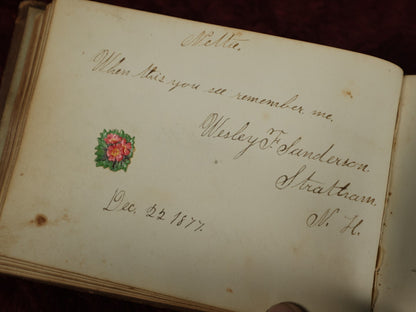 Nettie.
When this you see remember me.
Wesley F. Sanderson.
Stratham.
N. H.
Dec. 22 1877.